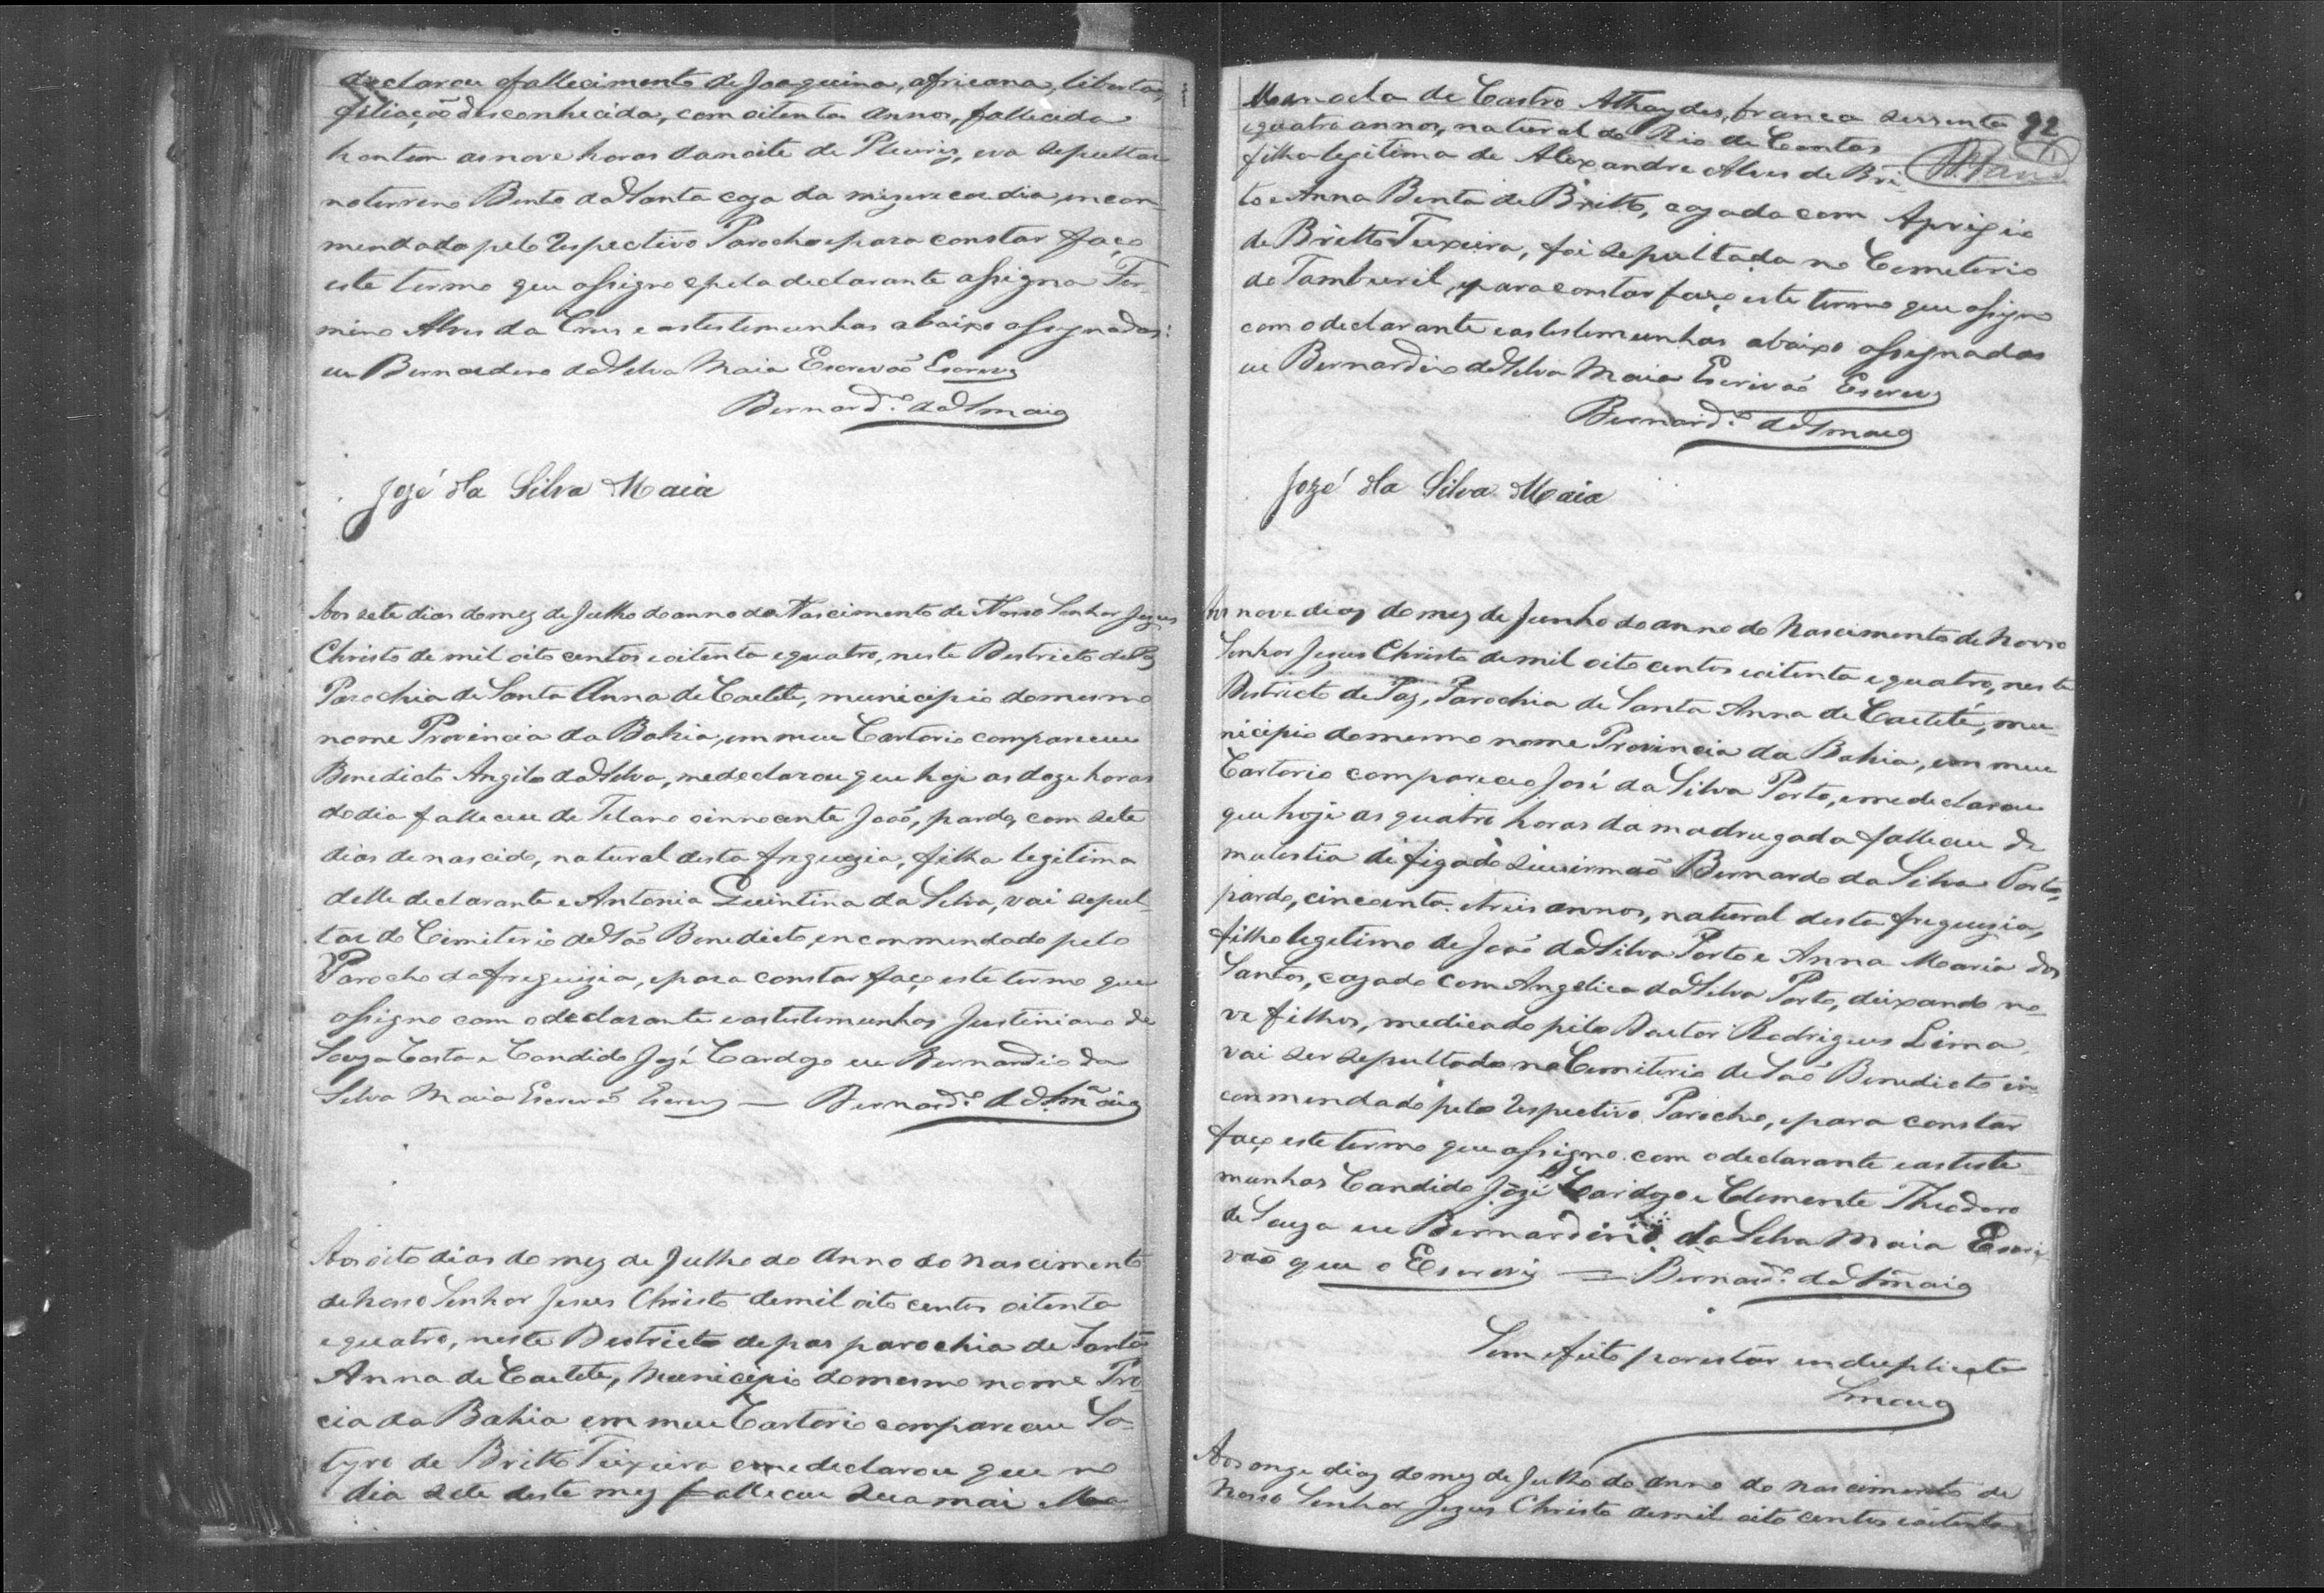 declarou fallecimento de Joaquina, africana, liberta,
filiação desconhecida, com oitenta annos, fallecida
hontem as nove horas da noite de Pleuris, e va sepultar
no terreno Bento da Santa caza da mizerecordia, encon-
mendada pelo respectivo Parocho e para constar faço
este termo que assigno e pela declarante assigna Fer-
mino Alves da Crus e as testemunhas abaixo assignadas:
eu Bernardino da Silva Maia Escrevão Escrevy
Bernard.º da S.ª maia
José da Silva Maia
Aos sete dias do mez de Julho do anno do Nascimento de Nosso Senhor Jezus
Christo de mil oito centos e oitenta e quatro, neste Destricto de Paz
Parochia de Santa Anna de Caeteté, municipio do mesmo
nome Provincia da Bahia, em meu Cartorio compareceu
Benedicto Angelo da Silva, me declarou que hoje as doze horas
do dia falleceu de Tetano o innocente João, pardo, com sete
dias de nascido, natural desta freguezia, filho legitima
delle declarante e Antonia Quintina da Silva, vai sepul-
tar do Cimiterio de São Benedicto, enconmendado pelo
Parocho da freguizia, e para constar faço este termo que
assigno com o declarante e as testemunhas Justiniano de
Souza Costa e Candido José Cardozo eu Bernardio da
Silva Maia Escrevão Escrevy — Bernard.º da S.ª maia
Aos oito dias do mez de Julho do Anno do Nascimento
de Nosso Senhor Jesus Christo de mil oito centos oitenta
e quatro, neste Destricto de pas parochia de Santa
Anna de Caeteté, Municipio do mesmo nome Pro
cia da Bahia em meu Cartorio compareceu Sa-
tyro de Britto Teixeira e me declarou que no
dia sete deste mez falleceu sua mai Ma
Manoela de Castro Athaydes, branca sessenta 92
e quatro annos, natural do Rio de Contas
filha legitima de Alexandre Alves de Bri
to e Anna Benta de Britto, cazada com Aprigio
de Britto Teixeira, foi sepultada no Cemeterio
do Tamburil, e para constar faço este termo que assigno
com o declarante e as testemunhas abaixo assignadas
eu Bernardino da Silva Maia Escrivão Escrevy
Bernard.º da S.ª maia
José da Silva Maia
Aos nove dias do mez de Junho do anno do Nascimento de Nosso
Senhor Jesus Christo de mil oito centos e oitenta e quatro, neste
Destricto de Paz, Parochia de Santa Anna de Caeteté, mu-
nicipio do mesmo nome Provincia da Bahia, em meu
Cartorio compareceo José da Silva Porto, e me declarou
que hoje as quatro horas da madrugada falleceu de
mulestia de figado seu irmão Bernardo da Silva Porto,
pardo, cincoenta e treis annos, natural desta freguezia,
filho legetimo de João da Silva Porto e Anna Maria dos
Santos, cazado com Angelica da Silva Porto, deixando no-
ve filhos, medicado pelo Doutor Rodrigues Lima,
vai ser sepultado no Cemiterio de São Benedicto en-
conmendado pelo respectivo Parocho, e para constar
faço este termo que assigno com o declarante e as teste
munhas Candido José Cardozo e Clemente Theodoro
de Souza eu Bernardino da Silva Maia Escri
vão que o Escrevy — Bernard.º da S.ª maia
Sem efeito por estar em duplicata
Smaia
Aos onze dias do mez de Julho do anno do nascimento de
Nosso Senhor Jezus Christo de mil oito centos e oitenta